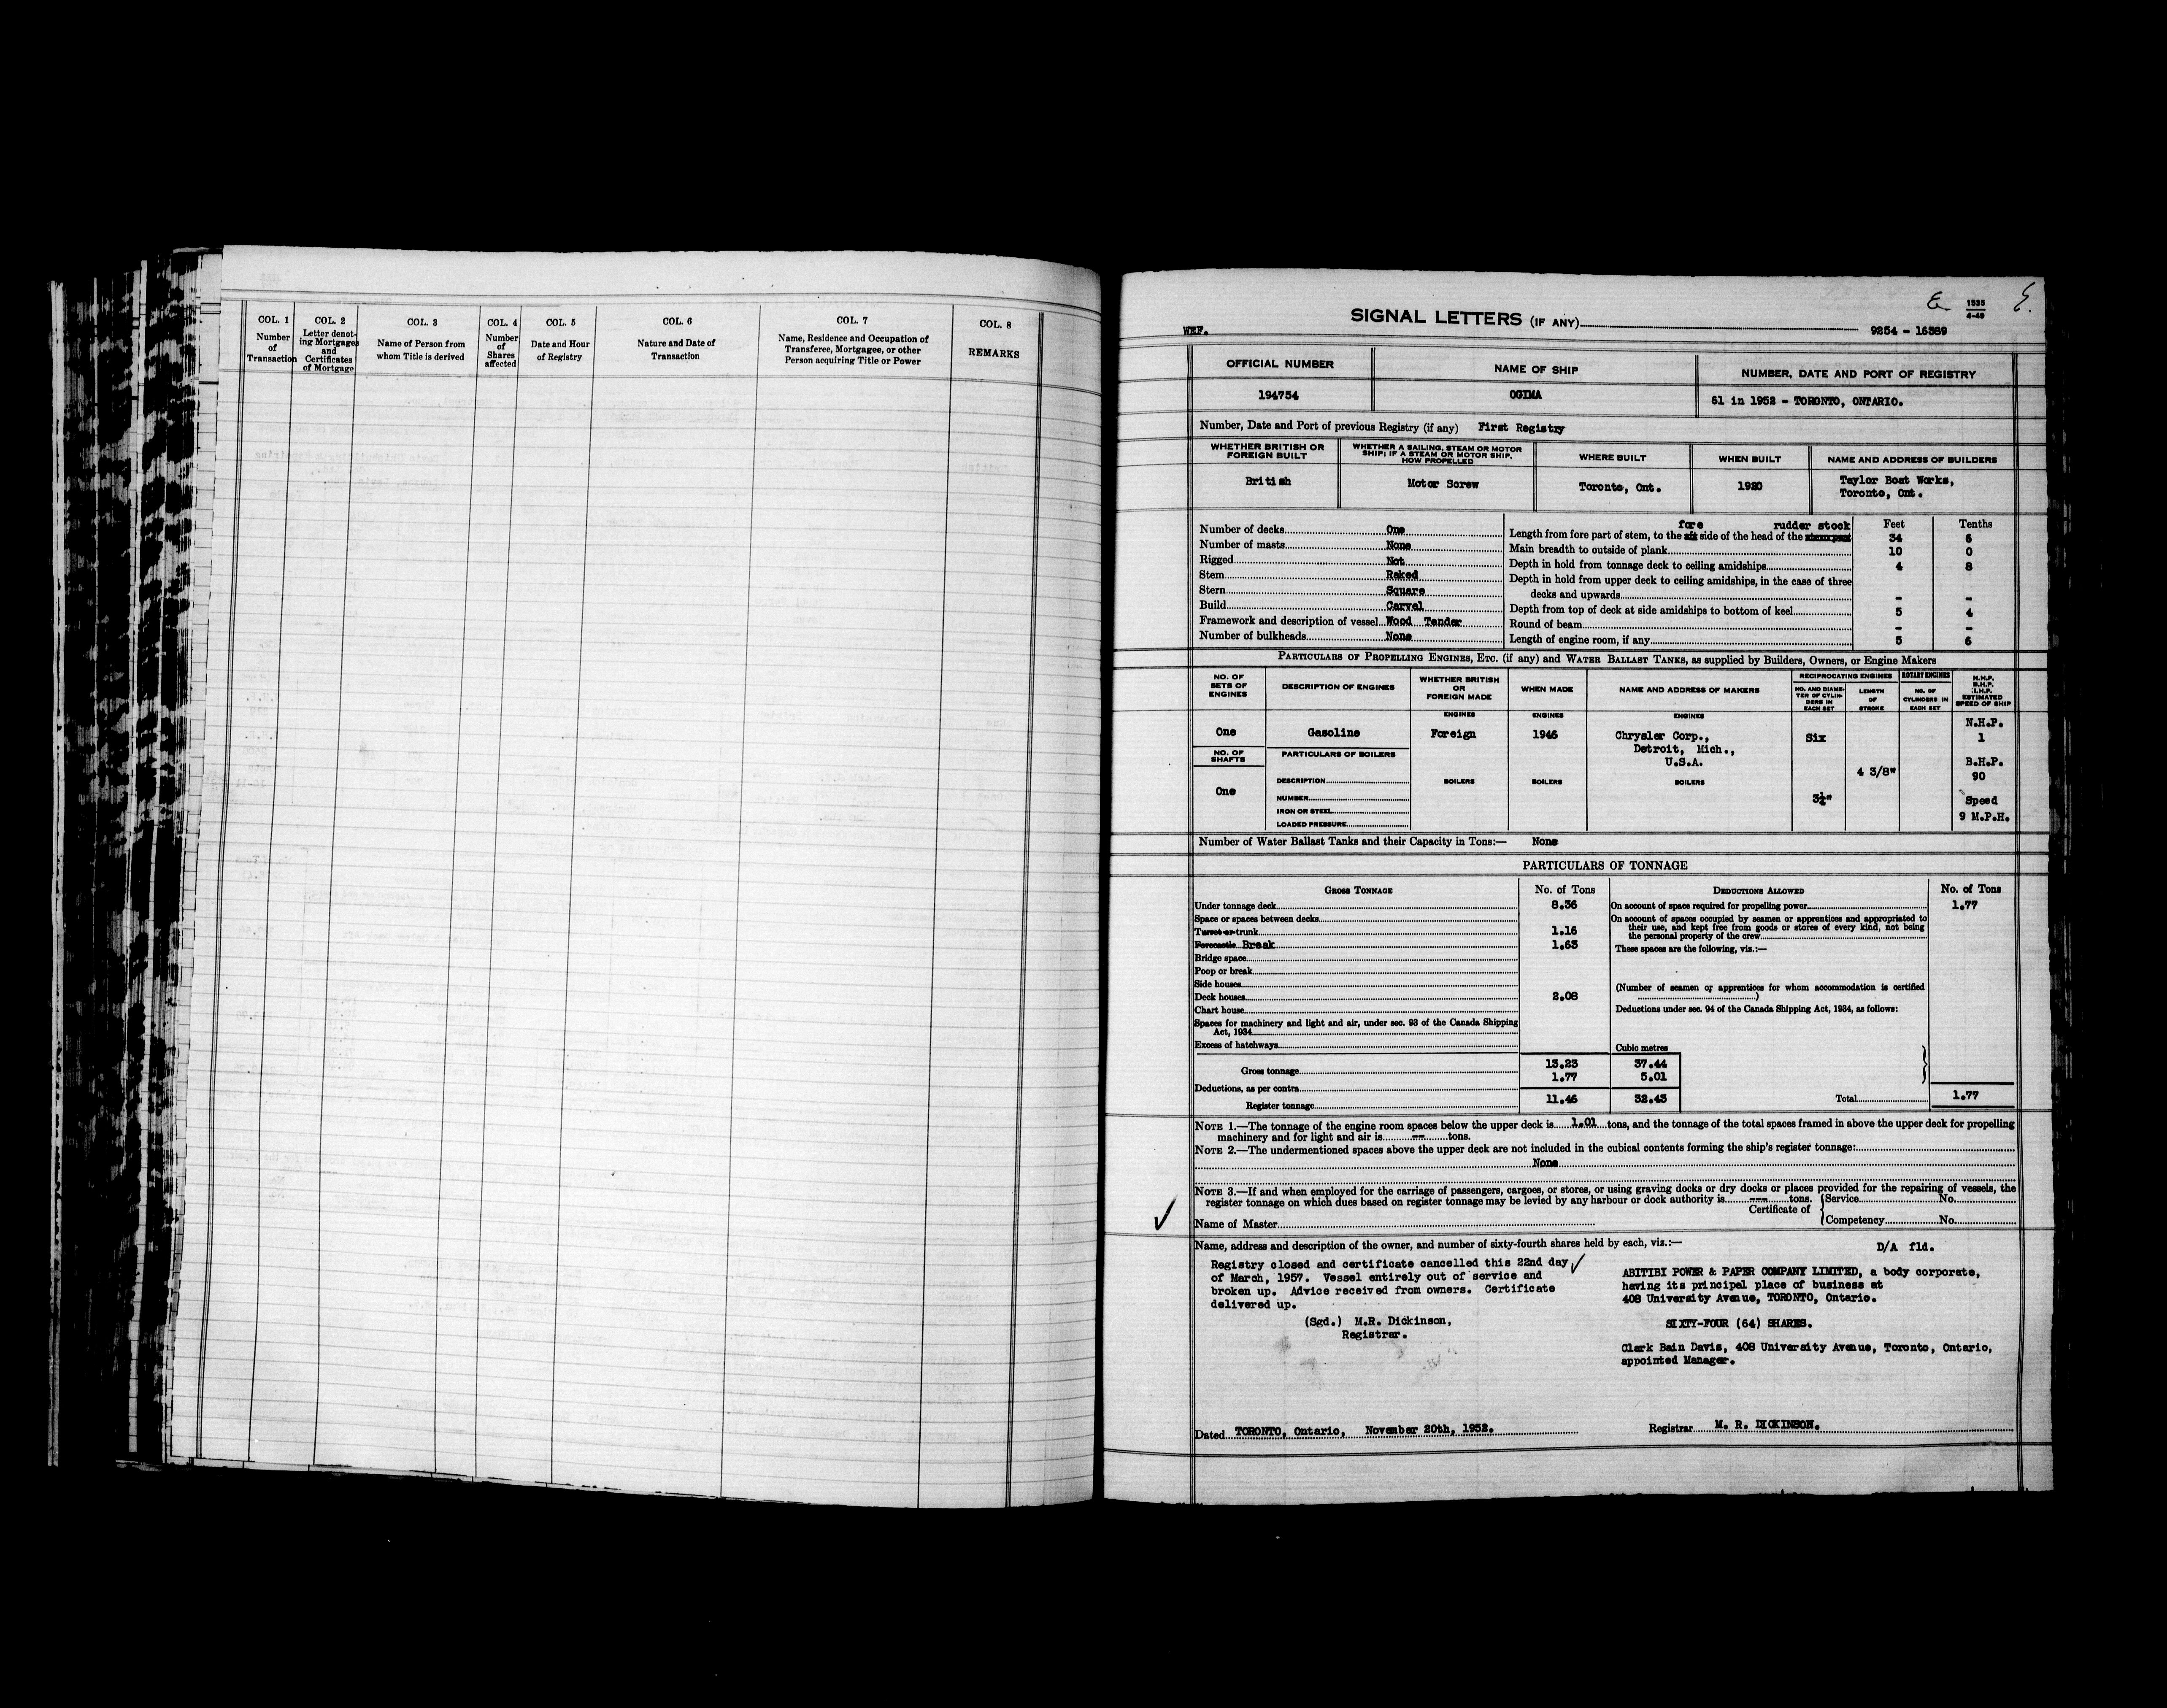 COL. 1
Number
of
Transaction
COL. 2
Letter denot-
ing Mortgages
and
Certificates
of Mortgage
COL. 3
Name of Person from
whom Title is derived
COL. 4
Number
of
Shares
affected
COL. 5
Date and Hour
of Registry
COL. 6
Nature and Date of
Transaction
COL. 7
Name, Residence and Occupation of
Transferee, Mortgagee, or other
Person acquiring Title or Power
COL. 8
REMARKS
1535
4-49
WEF.
SIGNAL LETTERS (IF ANY)
9254 - 16389
OFFICIAL NUMBER
NAME OF SHIP
NUMBER, DATE AND PORT OF REGISTRY
194754
OGIMA
61 in 1952 - TORONTO, ONTARIO.
Number, Date and Port of previous Registry (if any) First Registry
WHETHER BRITISH OR
FOREIGN BUILT
WHETHER A SAILING, STEAM OR MOTOR
SHIP; IF A STEAM OR MOTOR SHIP,
HOW PROPELLED
WHERE BUILT
WHEN BUILT
NAME AND ADDRESS OF BUILDERS
British
Motor Screw
Toronto, Ont.
1920
Taylor Boat Works,
Toronto, Ont.
Number of decks One
Number of masts None
Rigged Not
Stem Raked
Stern Square
Build Carvel
Framework and description of vessel Wood Tender
Number of bulkheads None
Feet Tenths
fore rudder stock
Length from fore part of stem, to the aft side of the head of the sternpost 34 6
Main breadth to outside of plank 10 0
Depth in hold from tonnage deck to ceiling amidships 4 8
Depth in hold from upper deck to ceiling amidships, in the case of three
decks and upwards - -
Depth from top of deck at side amidships to bottom of keel 5 4
Round of beam - -
Length of engine room, if any 5 6
PARTICULARS OF PROPELLING ENGINES, ETC. (if any) and WATER BALLAST TANKS, as supplied by Builders, Owners, or Engine Makers
NO. OF
SETS OF
ENGINES
DESCRIPTION OF ENGINES
WHETHER BRITISH
OR
FOREIGN MADE
WHEN MADE
NAME AND ADDRESS OF MAKERS
RECIPROCATING ENGINES
NO. AND DIAME-
TER OF CYLIN-
DERS IN
EACH SET
LENGTH
OF
STROKE
ROTARY ENGINES
NO. OF
CYLINDERS IN
EACH SET
N.H.P.
B.H.P.
I.H.P.
ESTIMATED
SPEED OF SHIP
ENGINES
ENGINES
ENGINES
One
Gasoline
Foreign
1946
Chrysler Corp.,
Detroit, Mich.,
U.S.A.
Six
3¼"
4 3/8"
N.H.P.
1
B.H.P.
90
Speed
9 M.P.H.
NO. OF
SHAFTS
One
PARTICULARS OF BOILERS
DESCRIPTION
NUMBER
IRON OR STEEL
LOADED PRESSURE
BOILERS
BOILERS
BOILERS
Number of Water Ballast Tanks and their Capacity in Tons:— None
PARTICULARS OF TONNAGE
GROSS TONNAGE
No. of Tons
Under tonnage deck 8.36
Space or spaces between decks
Turret or trunk 1.16
Forecastle Break 1.63
Bridge space
Poop or break
Side houses
Deck houses 2.08
Chart house
Spaces for machinery and light and air, under sec. 93 of the Canada Shipping
Act, 1934
Excess of hatchways
Cubic metres
Gross tonnage 13.23 37.44
Deductions, as per contra 1.77 5.01
Register tonnage 11.46 32.43
DEDUCTIONS ALLOWED
No. of Tons
On account of space required for propelling power 1.77
On account of spaces occupied by seamen or apprentices and appropriated to
their use, and kept free from goods or stores of every kind, not being
the personal property of the crew
These spaces are the following, viz.:—
(Number of seamen or apprentices for whom accommodation is certified
)
Deductions under sec. 94 of the Canada Shipping Act, 1934, as follows:
Total 1.77
NOTE 1.—The tonnage of the engine room spaces below the upper deck is 1.01 tons, and the tonnage of the total spaces framed in above the upper deck for propelling
machinery and for light and air is --- tons.
NOTE 2.—The undermentioned spaces above the upper deck are not included in the cubical contents forming the ship's register tonnage:
None
NOTE 3.—If and when employed for the carriage of passengers, cargoes, or stores, or using graving docks or dry docks or places provided for the repairing of vessels, the
register tonnage on which dues based on register tonnage may be levied by any harbour or dock authority is --- tons.
Name of Master
Certificate of
Service No.
Competency No.
Name, address and description of the owner, and number of sixty-fourth shares held by each, viz.:—
Registry closed and certificate cancelled this 22nd day
of March, 1957. Vessel entirely out of service and
broken up. Advice received from owners. Certificate
delivered up.
(Sgd.) M.R. Dickinson,
Registrar.
D/A fld.
ABITIBI POWER & PAPER COMPANY LIMITED, a body corporate,
having its principal place of business at
408 University Avenue, TORONTO, Ontario.
SIXTY-FOUR (64) SHARES.
Clark Bain Davis, 408 University Avenue, Toronto, Ontario,
appointed Manager.
Dated TORONTO, Ontario, November 20th, 1952.
Registrar M. R. DICKINSON.